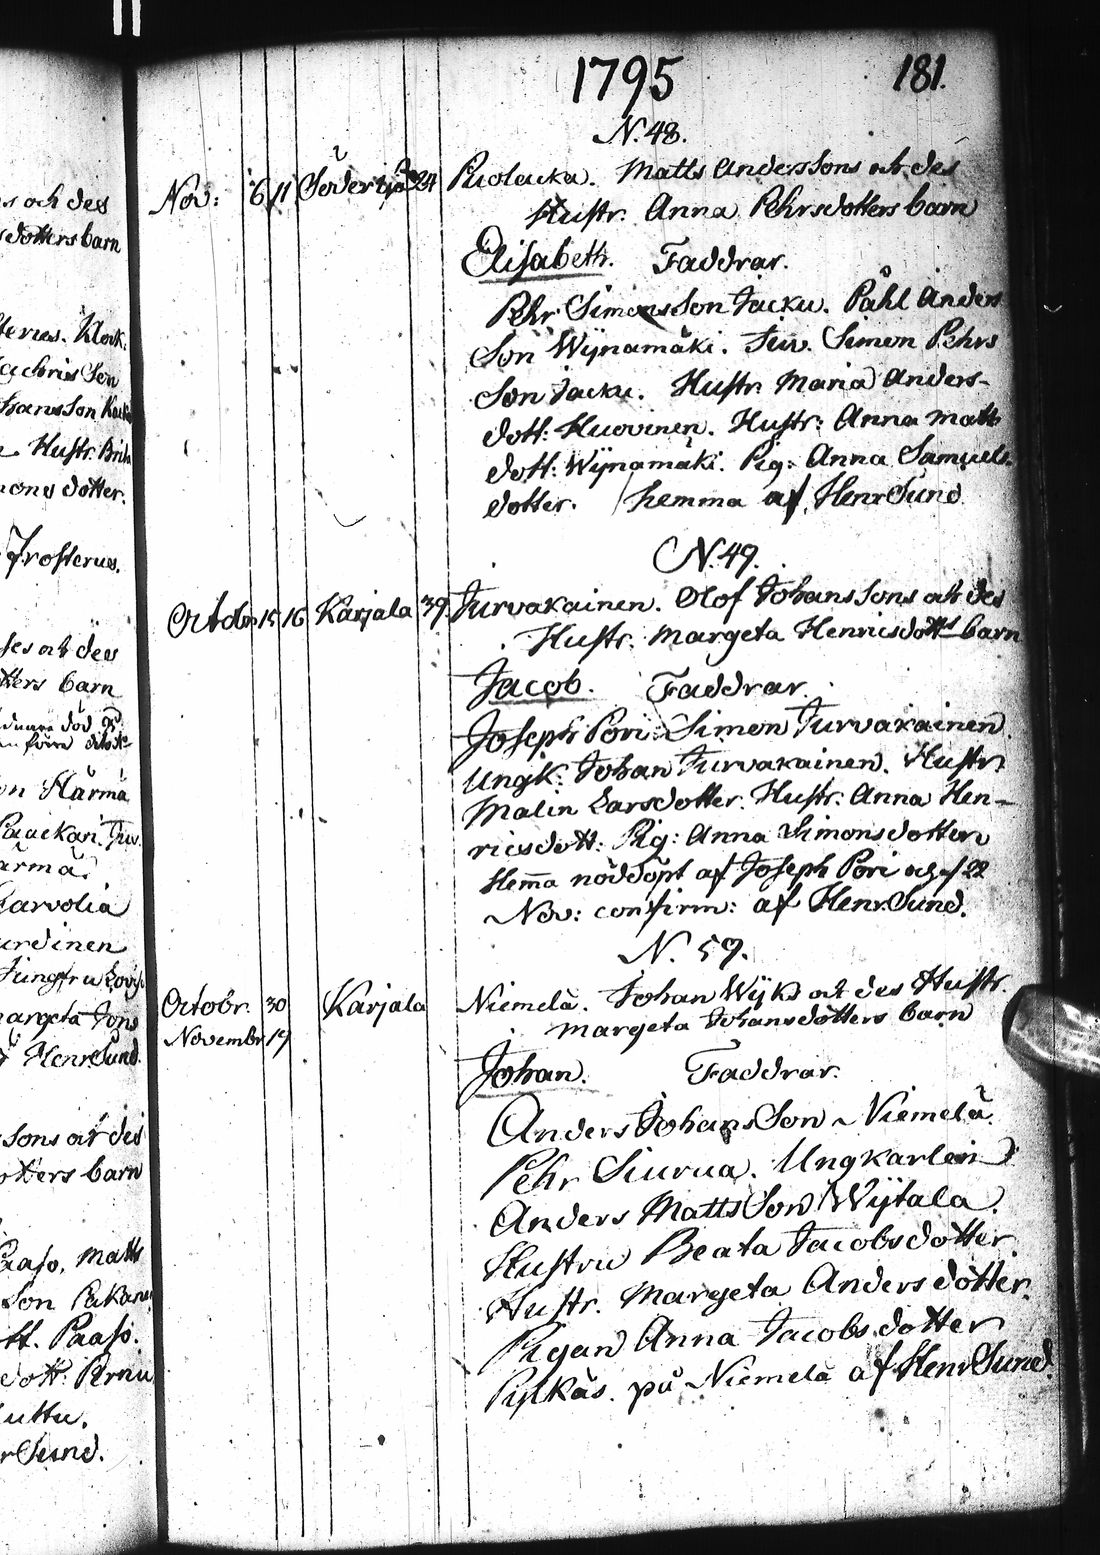 1795 181.
N. 48.
Nov: 6 11 24 Puolacka. Matts Anderssons och des
Hustr. Anna Pehrsdotters barn
Elisabeth. Faddrar.
Pehr Simonsson Jacku. Påhl Anders
Son Wÿnamäki. Juv. Simon Pehrs
Son Jacku. Hustr. Maria Anders-
dott: Huovinen. Hustr: Anna Matts
dott: Wÿnamäki. Pig: Anna Samuels
dotter. hemma af Henr Sund
N. 49.
Octobr 15 16 Karjala 39 Turvakainen. Olof Johanssons och des
Hustr. Margeta Henricsdotters barn
Jacob. Faddrar.
Joseph Pori. Simon Turvakainen.
Ungk: Johan Turvakainen. Hustr:
Malin Larsdotter. Hustr: Anna Hen-
ricsdott: Pig: Anna Simonsdotter
Hem̄a nöddöpt af Joseph Pori och af 22
Nov: confirm: af Henr Sund.
N. 59.
Octobr. 30 Karjala Niemelä. Johan Wÿks och des Hustr.
Novembr 19 Margeta Johansdotters barn
Johan. Faddrar.
Anders Johansson Niemelä.
Pehr Siurua. Ungkarlen
Anders Mattsson Wÿtala.
Hustru Beata Jacobsdotter.
Hustr. Margeta Andersdotter.
Pigan Anna Jacobsdotter
på Niemelä af Henr Sund.
s och des
sdotters barn
Klock.
Hustr. Brita
dotter.
Frosterus.
ses och des
tters barn
on Härmä
ärmä.
Karvolia
urdinen
Jungfru
Margeta Jons
Henr Sund.
sons och des
otters barn
Paaso, Matts
Son
tt. Paaso.
dott: Pernu
uttu.
r Sund.